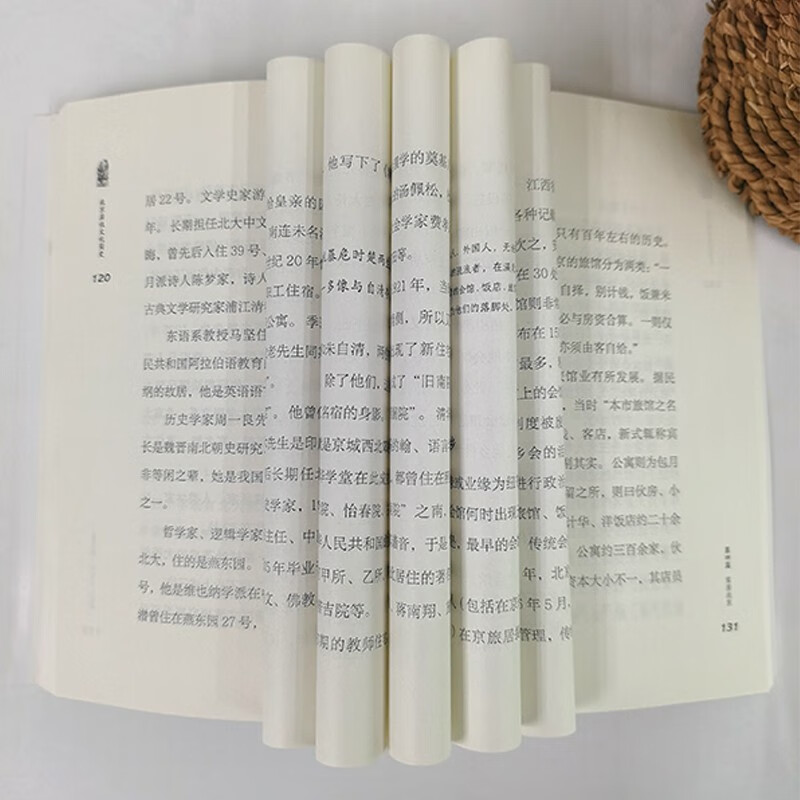 120
居22号。文学史家游
年。长期担任北大中文
晦、曾先后入住39号、
月派诗人陈梦家，诗人
古典文学研究家浦江清
东语系教授马坚住
民共和国阿拉伯语教育
纲的故居，他是英语语
历史学家周一良先
长是魏晋南北朝史研究
非等闲之辈，她是我国
之一。
哲学家、逻辑学家
北大，住的是燕东园。
号，他是维也纳学派在
潜曾住在燕东园27号，
给皇亲的
南连未名
世纪20年
工住宿。
公寓。季
老先生同
”。他曾
先生是印
后长期任
学家，1
主任、中
5年毕业
文、佛教
他写下了
墓危时楚两
多像与自清
朱自清，两
除了他们，
名宿的身影
是京城西北
学堂在此
院、怡春院
人民共和国
甲所、乙所
吉院等。
期的教师住
学的奠基
的汤佩松，
会学家费孝
等。
1921年，当
侧，所以
现了新住
了“旧南
院”。清
翰、语言
都曾住在
”之南，
潘音，于是
此居住的著
蒋南翔、
、外国人，无
的流浪者，在漫
的会馆、饭店、
为他们的落脚处。
城业缘为纽
会馆何时出现
，最早的会
人（包括在京
）在京旅居
江西
各种记
次之，
在30处
馆则非
布在15
最多，
上的会
制度被废
乡会的
进行政治
旅馆、饭
传统会
年，北
6年5月
管理，传
只有百年左右的历史。
京的旅馆分为两类：“一
自择，别计钱，饭兼米
必与房资合算。一则仅
亦须由客自给。”
馆业有所发展。据民
，当时“本市旅馆之名
、客店，新式辄称宾
则其实。公寓则为包月
留之所，则曰伙房、小
计华、洋饭店约二十余
，公寓约三百余家，伙
资本大小不一，其店员
131